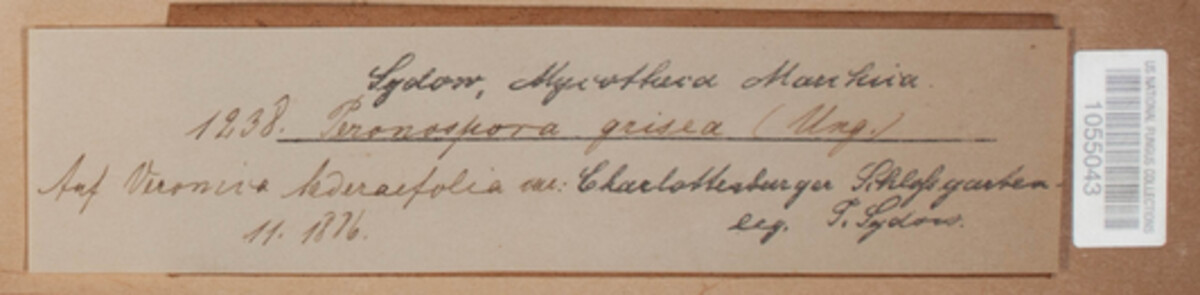 Sydow, Mycotheca Marchica.
1238. Peronospora grisea (Ung.)
Auf Veronica hederaefolia Charlottenburger Schloßgarten
11. 1876. leg. P. Sydow.
US NATIONAL FUNGUS COLLECTIONS
1055043